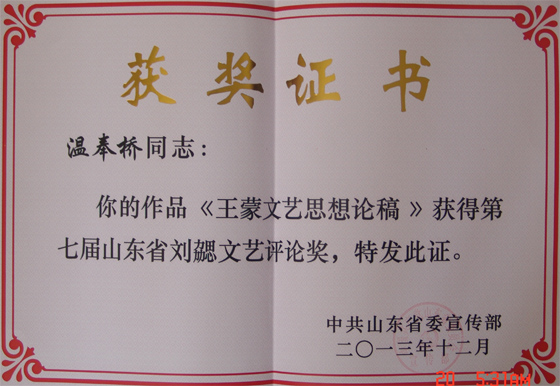 获奖证书
温奉桥同志：
你的作品《王蒙文艺思想论稿》获得第
七届山东省刘勰文艺评论奖，特发此证。
中共山东省委宣传部
二〇一三年十二月